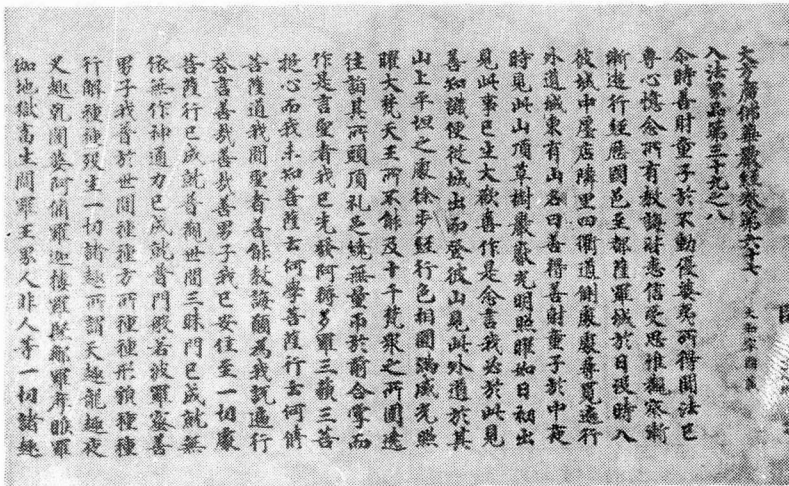 大方廣佛華嚴經卷第六十七
大和寧國藏
入法界品第三十九之八
尒時善財童子於不動優婆夷所得聞法已
專心憶念所有教誨皆悉信受思惟觀察漸
漸遊行經歷國邑至都薩羅城於日沒時入
彼城中廛店隣里四衢道側處處尋覓遍行
外道城東有山名曰善得善財童子於中夜
時見此山頂草樹巖巘光明照曜如日初出
見此事已生大歡喜作是念言我必於此見
善知識便從城出而登彼山見此外道於其
山上平坦之處徐步經行色相圓滿威光照
曜大梵天王所不能及十千梵眾之所圍遶
往詣其所頭頂礼足遶無量帀於前合掌而
作是言聖者我已先發阿耨多羅三藐三菩
提心而我未知菩薩云何學菩薩行云何修
菩薩道我聞聖者善能教誨願為我說遍行
荅言善哉善哉善男子我已安住至一切處
菩薩行已成就普觀世間三昧門已成就無
依無作神通力已成就普門般若波羅蜜善
男子我普於世間種種方所種種形貌種種
行解種種歿生一切諸趣所謂天趣龍趣夜
叉趣乾闥婆阿脩羅迦樓羅緊那羅摩睺羅
伽地獄畜生閻羅王界人非人等一切諸趣